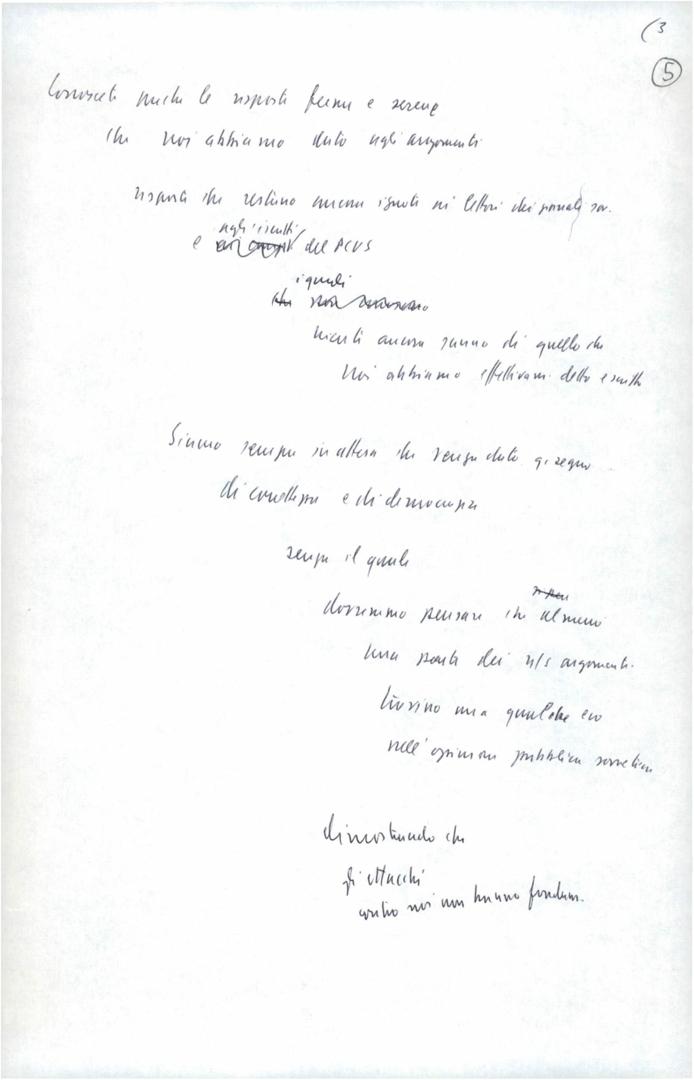 (3
5
Conoscete anche le risposte ferme e serene
che noi abbiamo dato agli argomenti
risposte che restano ancora ignote ai lettori dei giornali sov.
agli iscritti
e del PCUS
i quali
che
niente ancora sanno di quello che
noi abbiamo effettivam. detto e scritto
Siamo sempre in attesa che venga dato q. segno
di correttezza e di democrazia
senza il quale
dovremmo pensare che almeno
una parte dei n/s argomenti
trovino una qualche eco
nell'opinione pubblica sovietica
dimostrando che
gli attacchi
contro noi non hanno fondam.